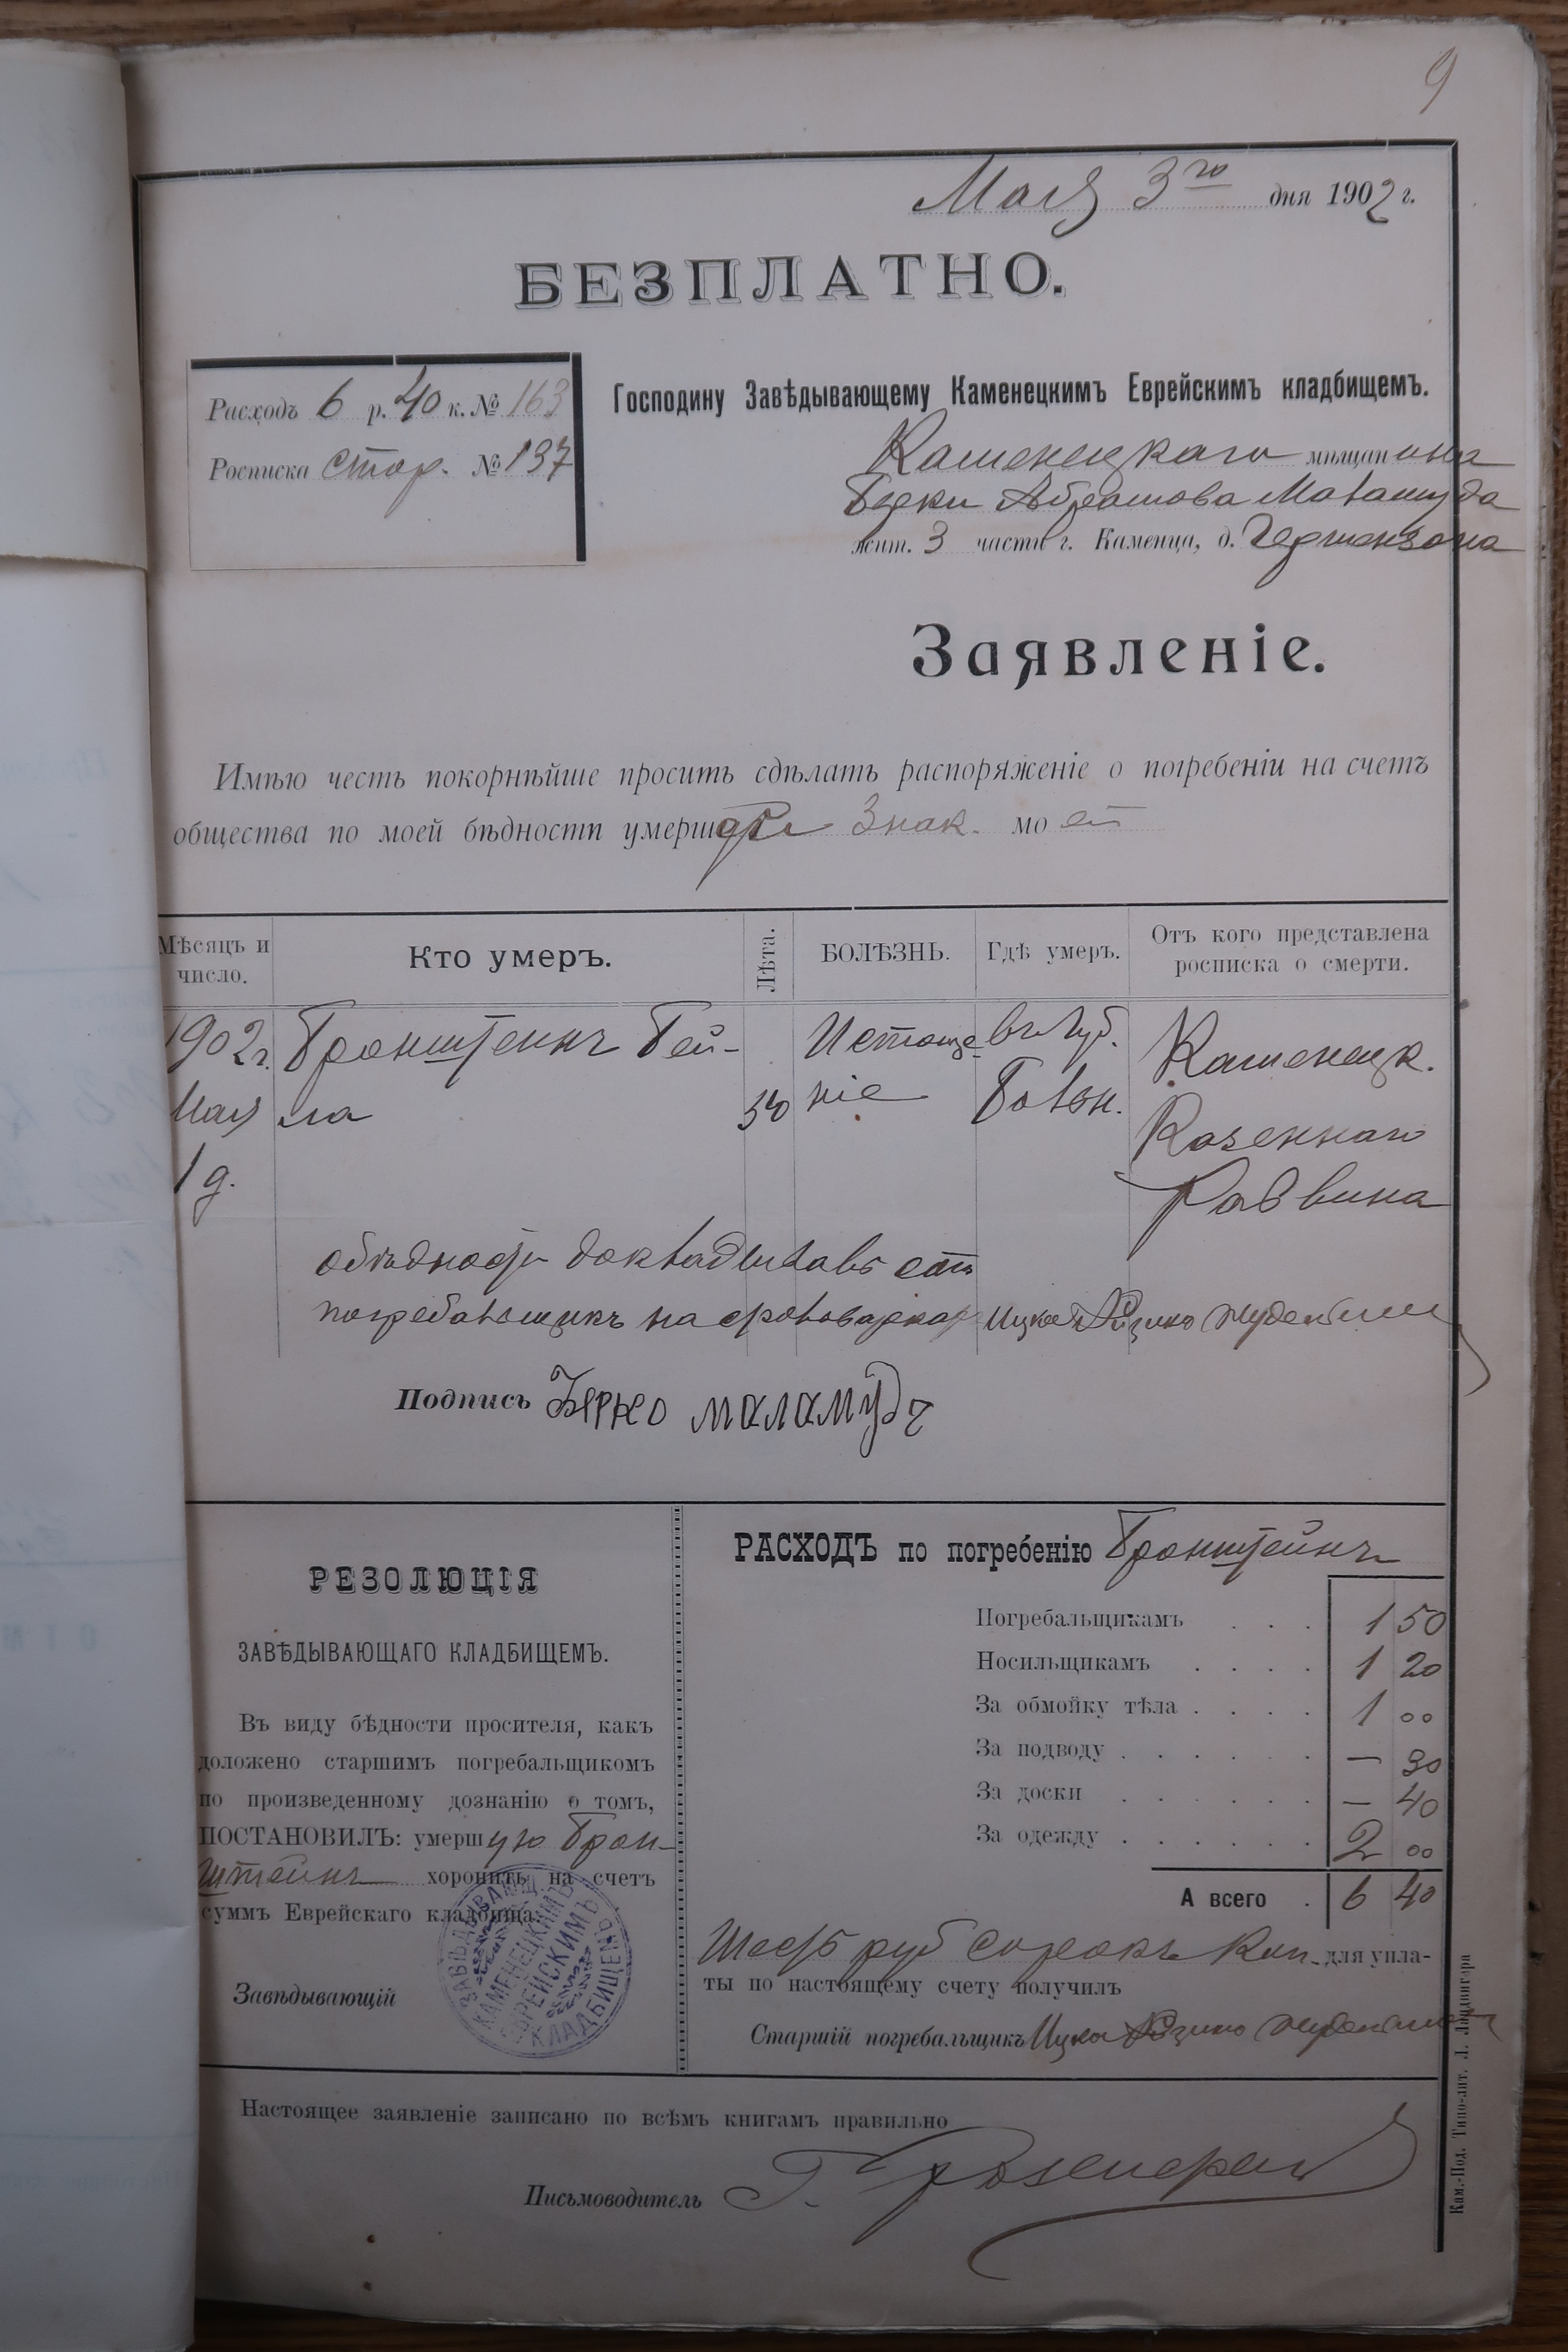 9
Мая 3го дня 1902 г.
БЕЗПЛАТНО.
Расходъ 6 р. 40 к. № 163
Росписка стар. № 137
Господину Завѣдывающему Каменецкимъ Еврейскимъ кладбищемъ.
Каменецкаго мѣщанина
Берки Абрамова Маламуда
жит. 3 части г. Каменца, д. Гершензона
Заявленіе.
Имѣю честь покорнѣйше просить сдѣлать распоряженіе о погребеніи на счетъ
общества по моей бѣдности умершей Знак. моей
Мѣсяцъ и число.
Кто умеръ.
Лѣта.
БОЛѢЗНЬ.
Гдѣ умеръ.
Отъ кого представлена росписка о смерти.
1902 г. Бронштейнъ Бей- Истоще- въ Губ. Каменецк.
Мая ла 50 ніе Больн. Казеннаго
1 д. Раввина
обѣдности докладывалъ стар
погребальщикъ Ицко
Подпись Берко маламудъ
РЕЗОЛЮЦІЯ
ЗАВѢДЫВАЮЩАГО КЛАДБИЩЕМЪ.
Въ виду бѣдности просителя, какъ
доложено старшимъ погребальщикомъ
по произведенному дознанію о томъ,
ПОСТАНОВИЛЪ: умершую Брон-
штейнъ хоронить на счетъ
суммъ Еврейскаго кладбища.
Завѣдывающій
ЗАВѢДЫВАЮЩ. КАМЕНЕЦКИМЪ ЕВРЕЙСКИМЪ КЛАДБИЩЕМЪ
РАСХОДЪ по погребенію Бронштейнъ
Погребальщикамъ . . . 1 50
Носильщикамъ . . . . 1 20
За обмойку тѣла . . . . 1 00
За подводу . . . . . . — 30
За доски . . . . . . — 40
За одежду . . . . . . 2 00
А всего . 6 40
Шесть руб сорокъ коп. для упла-
ты по настоящему счету получилъ
Старшій погребальщикъ Ицко
Настоящее заявленіе записано по всѣмъ книгамъ правильно
Письмоводитель Г.
Кам.-Под. Типо-лит. Л. Ландвигера